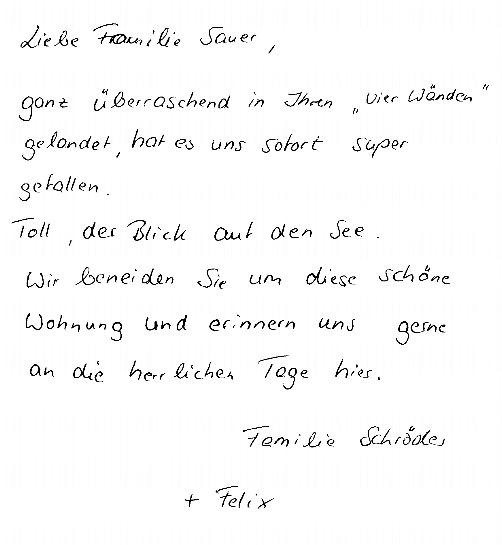 Liebe Familie Sauer,
ganz überraschend in Ihren „vier Wänden"
gelandet, hat es uns sofort super
gefallen.
Toll, der Blick auf den See.
Wir beneiden Sie um diese schöne
Wohnung und erinnern uns gerne
an die herrlichen Tage hier.
Familie Schröder
+ Felix